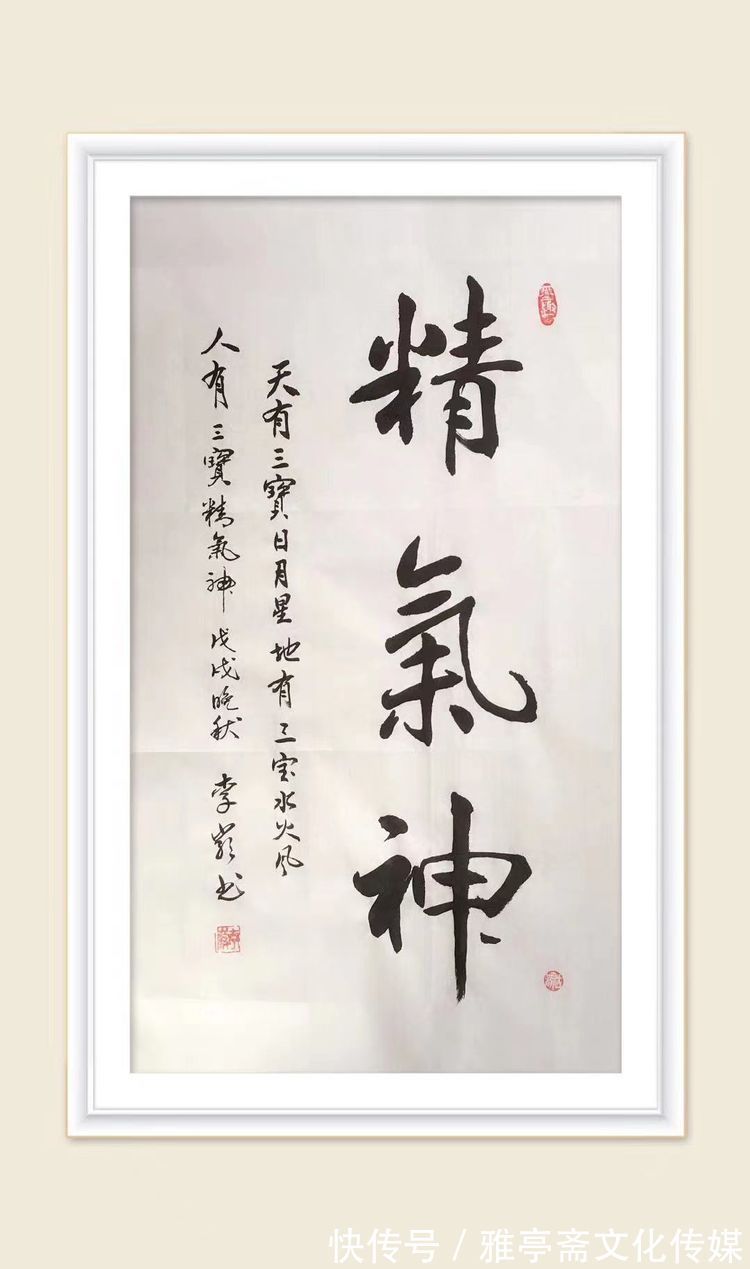 精
氣
神
天有三寶日月星地有三宝水火风
人有三寶精氣神戊戌晚秋 李岩书
快传号 / 雅亭斋文化传媒